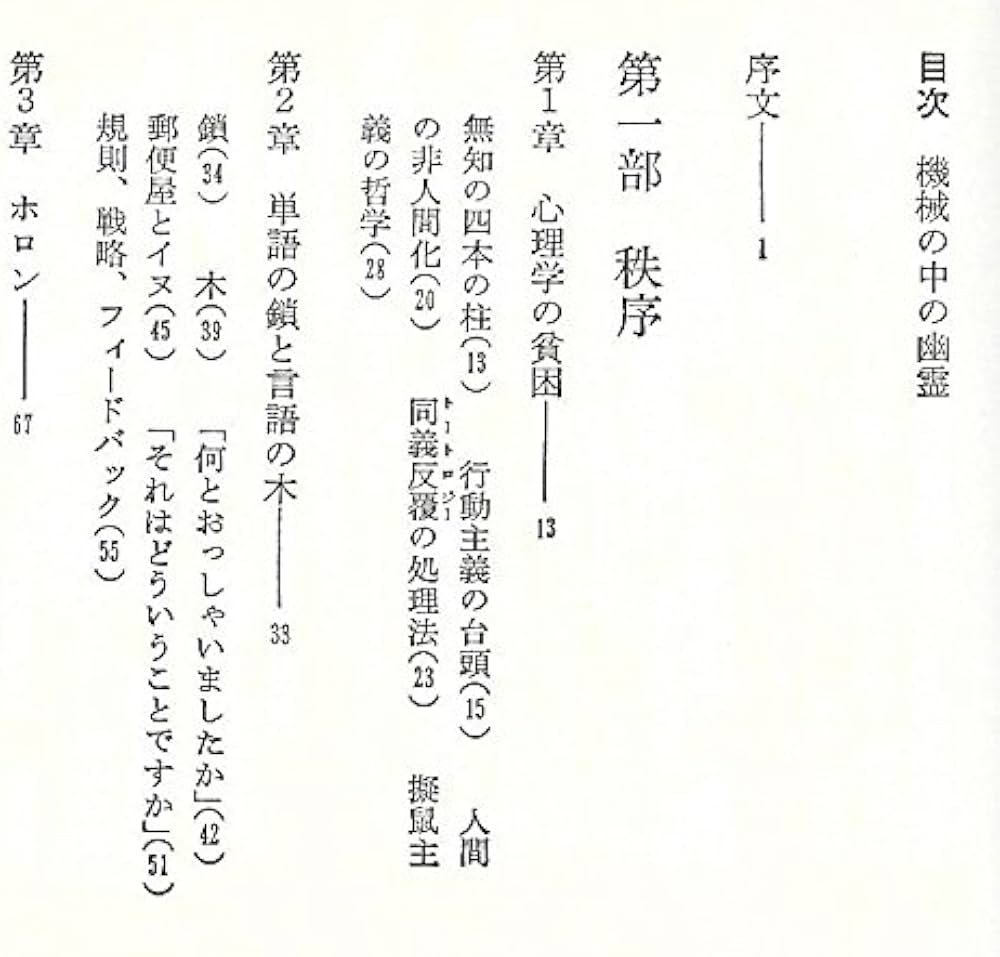 目次　機械の中の幽霊
序文――― 1
第一部　秩序
第1章　心理学の貧困――― 13
無知の四本の柱(13)　行動主義の台頭(15)　人間
の非人間化(20)　同義反覆の処理法(23)　擬鼠主
トートロジー
義の哲学(28)
第2章　単語の鎖と言語の木――― 33
鎖(34)　木(39)　「何とおっしゃいましたか」(42)
郵便屋とイヌ(45)　「それはどういうことですか」(51)
規則、戦略、フィードバック(55)
第3章　ホロン――― 67